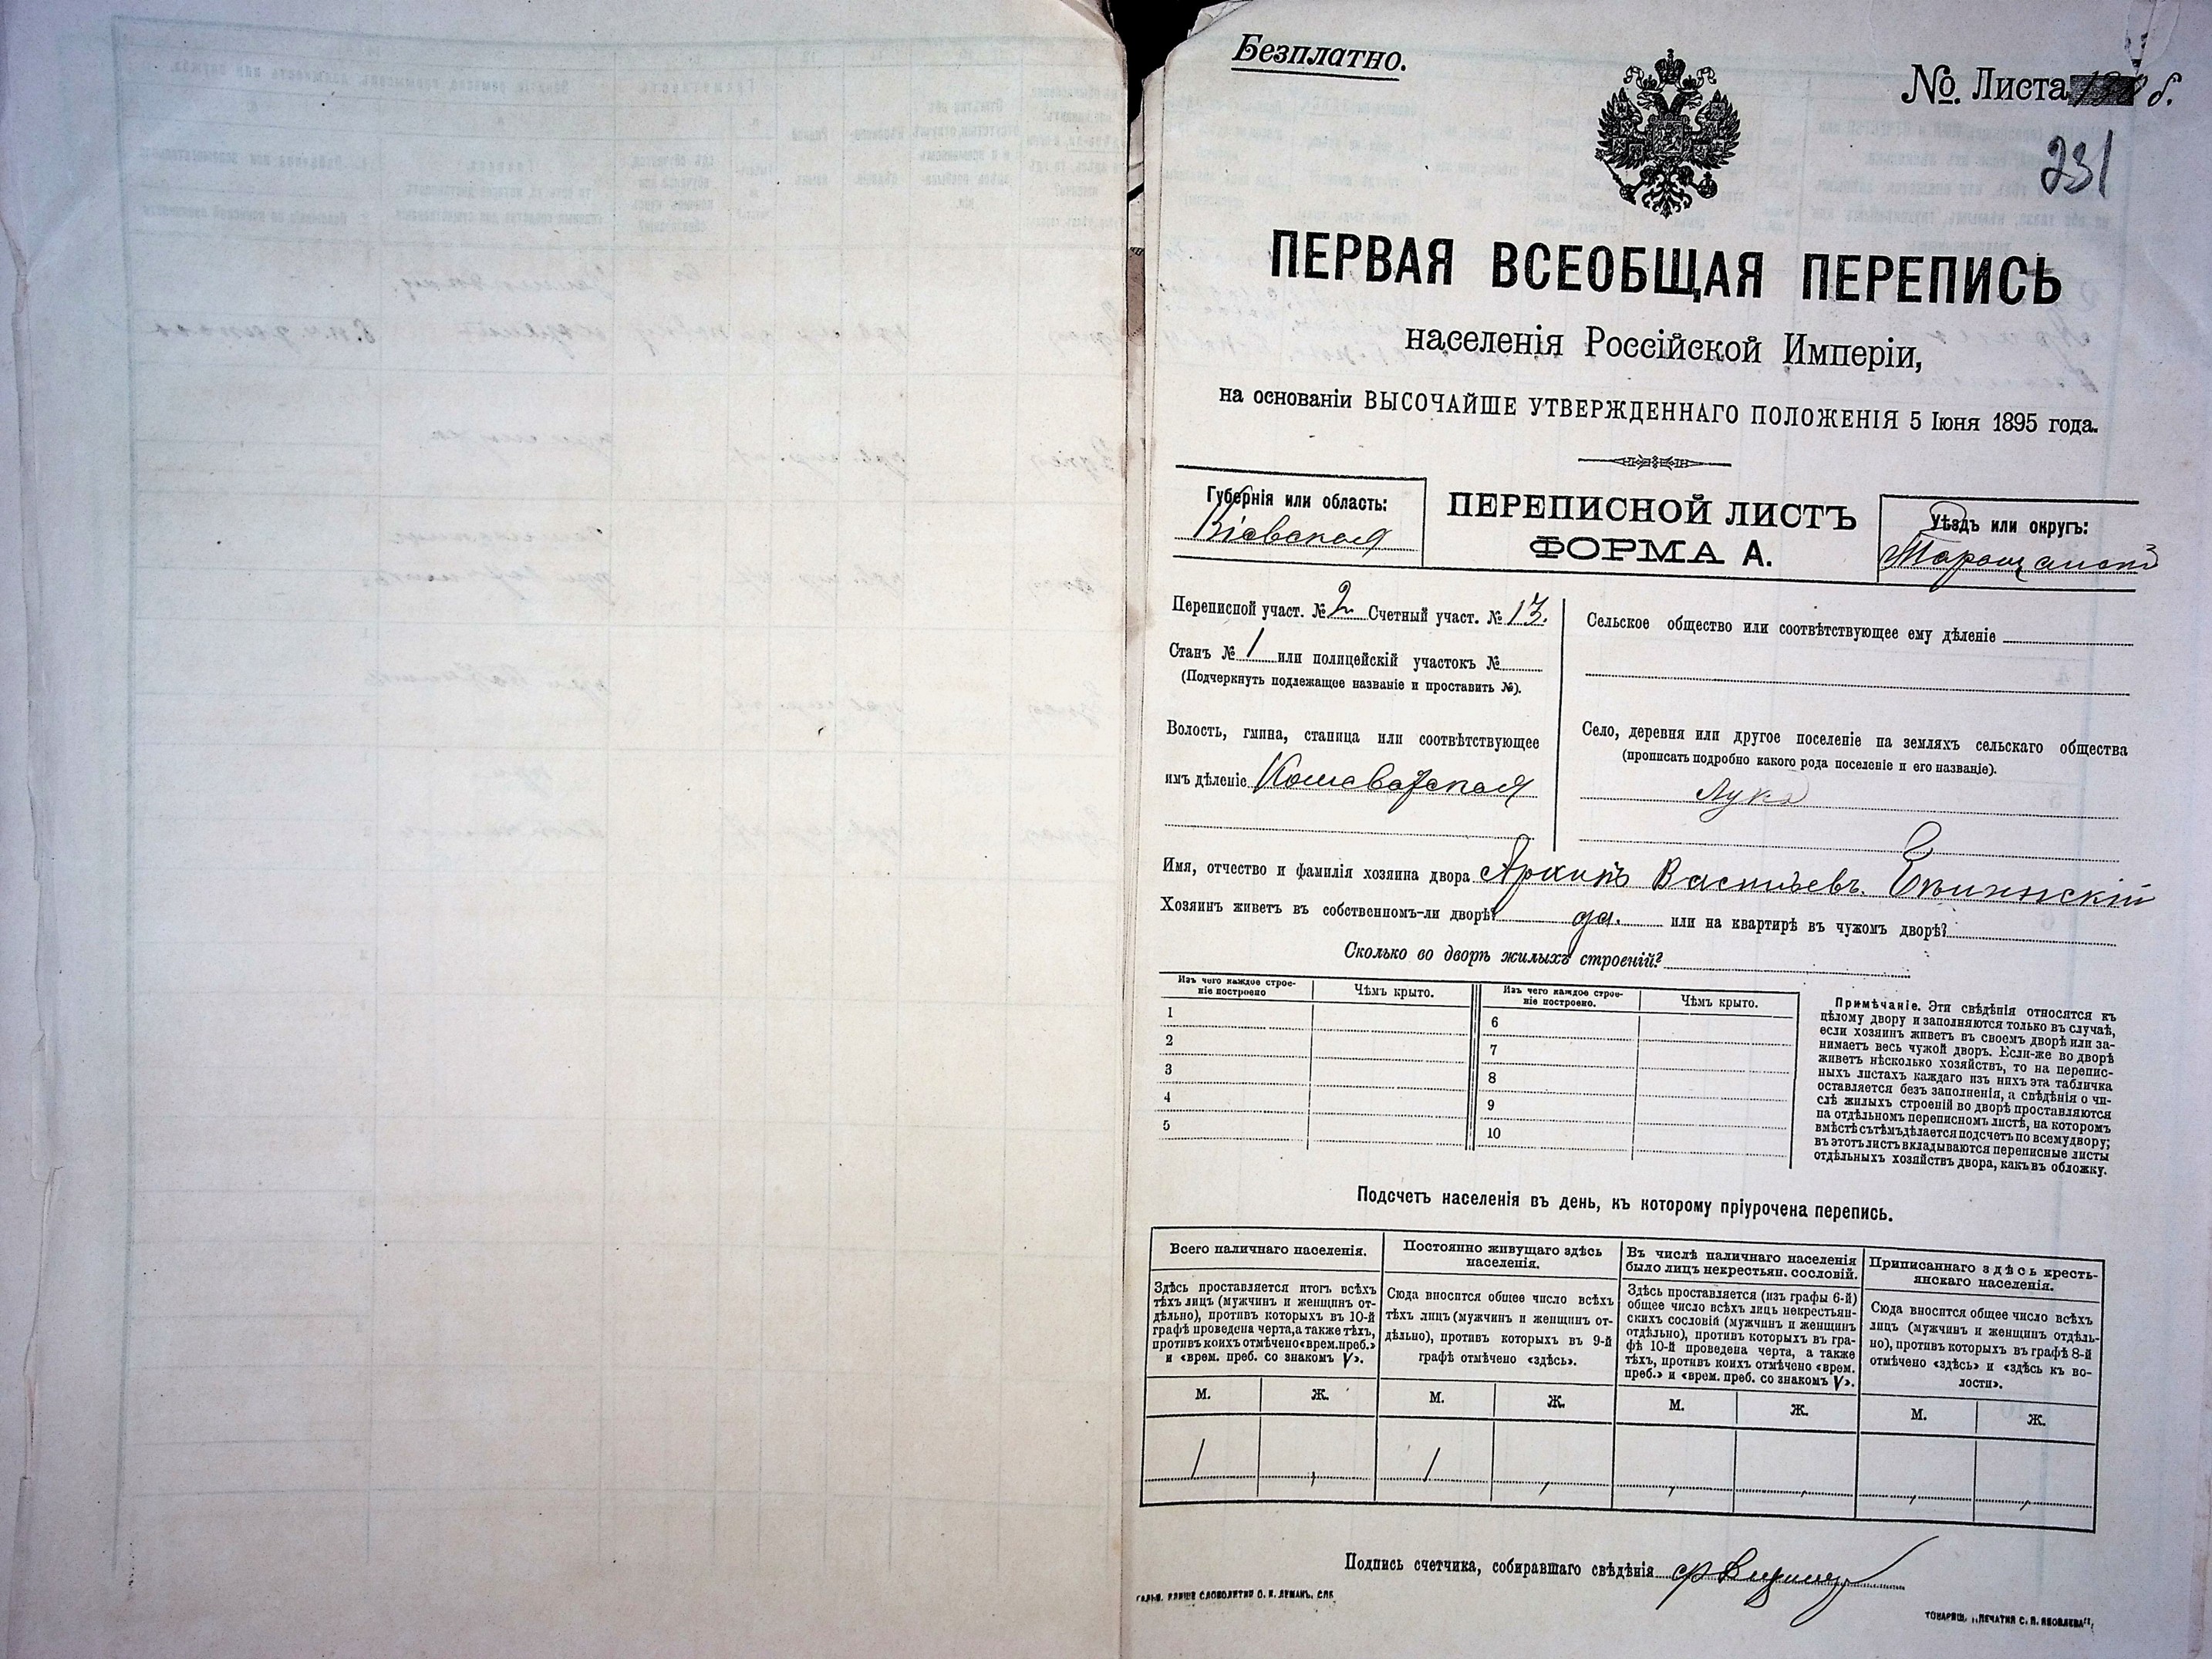 Безплатно.
№ Листа
231
ПЕРВАЯ ВСЕОБЩАЯ ПЕРЕПИСЬ
населенія Россійской Имперіи,
на основаніи ВЫСОЧАЙШЕ УТВЕРЖДЕННАГО ПОЛОЖЕНІЯ 5 Іюня 1895 года.
Губернія или область:
Кіевская
ПЕРЕПИСНОЙ ЛИСТЪ
ФОРМА А.
Уѣздъ или округъ:
Таращанскій
Переписной участ. № 2 Счетный участ. № 13.
Станъ № 1 или полицейскій участокъ №
(Подчеркнуть подлежащее названіе и проставить №).
Волость, гмина, станица или соотвѣтствующее
имъ дѣленіе
Сельское общество или соотвѣтствующее ему дѣленіе
Село, деревня или другое поселеніе на земляхъ сельскаго общества
(прописать подробно какого рода поселеніе и его названіе).
Лука
Имя, отчество и фамилія хозяина двора Архипъ Васильевъ.
Хозяинъ живетъ въ собственномъ-ли дворѣ? да. или на квартирѣ въ чужомъ дворѣ?
Сколько во дворѣ жилыхъ строеній?
Изъ чего каждое строе-
ніе построено
Чѣмъ крыто.
Изъ чего каждое строе-
ніе построено.
Чѣмъ крыто.
1
2
3
4
5
6
7
8
9
10
Примѣчаніе. Эти свѣдѣнія относятся къ
цѣлому двору и заполняются только въ случаѣ,
если хозяинъ живетъ въ своемъ дворѣ или за-
нимаетъ весь чужой дворъ. Если-же во дворѣ
живетъ нѣсколько хозяйствъ, то на перепис-
ныхъ листахъ каждаго изъ нихъ эта табличка
оставляется безъ заполненія, а свѣдѣнія о чи-
слѣ жилыхъ строеній во дворѣ проставляются
на отдѣльномъ переписномъ листѣ, на которомъ
вмѣстѣ съ тѣмъ дѣлается подсчетъ по всему двору;
въ этотъ листъ вкладываются переписные листы
отдѣльныхъ хозяйствъ двора, какъ въ обложку.
Подсчетъ населенія въ день, къ которому пріурочена перепись.
Всего наличнаго населенія.
Здѣсь проставляется итогъ всѣхъ
тѣхъ лицъ (мужчинъ и женщинъ от-
дѣльно), противъ которыхъ въ 10-й
графѣ проведена черта, а также тѣхъ,
противъ коихъ отмѣчено «врем. преб.»
и «врем. преб. со знакомъ V».
Постоянно живущаго здѣсь
населенія.
Сюда вносится общее число всѣхъ
тѣхъ лицъ (мужчинъ и женщинъ от-
дѣльно), противъ которыхъ въ 9-й
графѣ отмѣчено «здѣсь».
Въ числѣ наличнаго населенія
было лицъ некрестьян. сословій.
Здѣсь проставляется (изъ графы 6-й)
общее число всѣхъ лицъ некрестьян-
скихъ сословій (мужчинъ и женщинъ
отдѣльно), противъ которыхъ въ гра-
фѣ 10-й проведена черта, а также
тѣхъ, противъ коихъ отмѣчено «врем.
преб.» и «врем. преб. со знакомъ V».
Приписаннаго здѣсь кресть-
янскаго населенія.
Сюда вносится общее число всѣхъ
лицъ (мужчинъ и женщинъ отдѣль-
но), противъ которыхъ въ графѣ 8-й
отмѣчено «здѣсь» и «здѣсь къ во-
лости».
М. Ж. М. Ж. М. Ж. М. Ж.
1 , 1 , , , , ,
Подпись счетчика, собиравшаго свѣдѣнія
ТОВАРИЩ. „ПЕЧАТНЯ С. П. ЯКОВЛЕВА“,